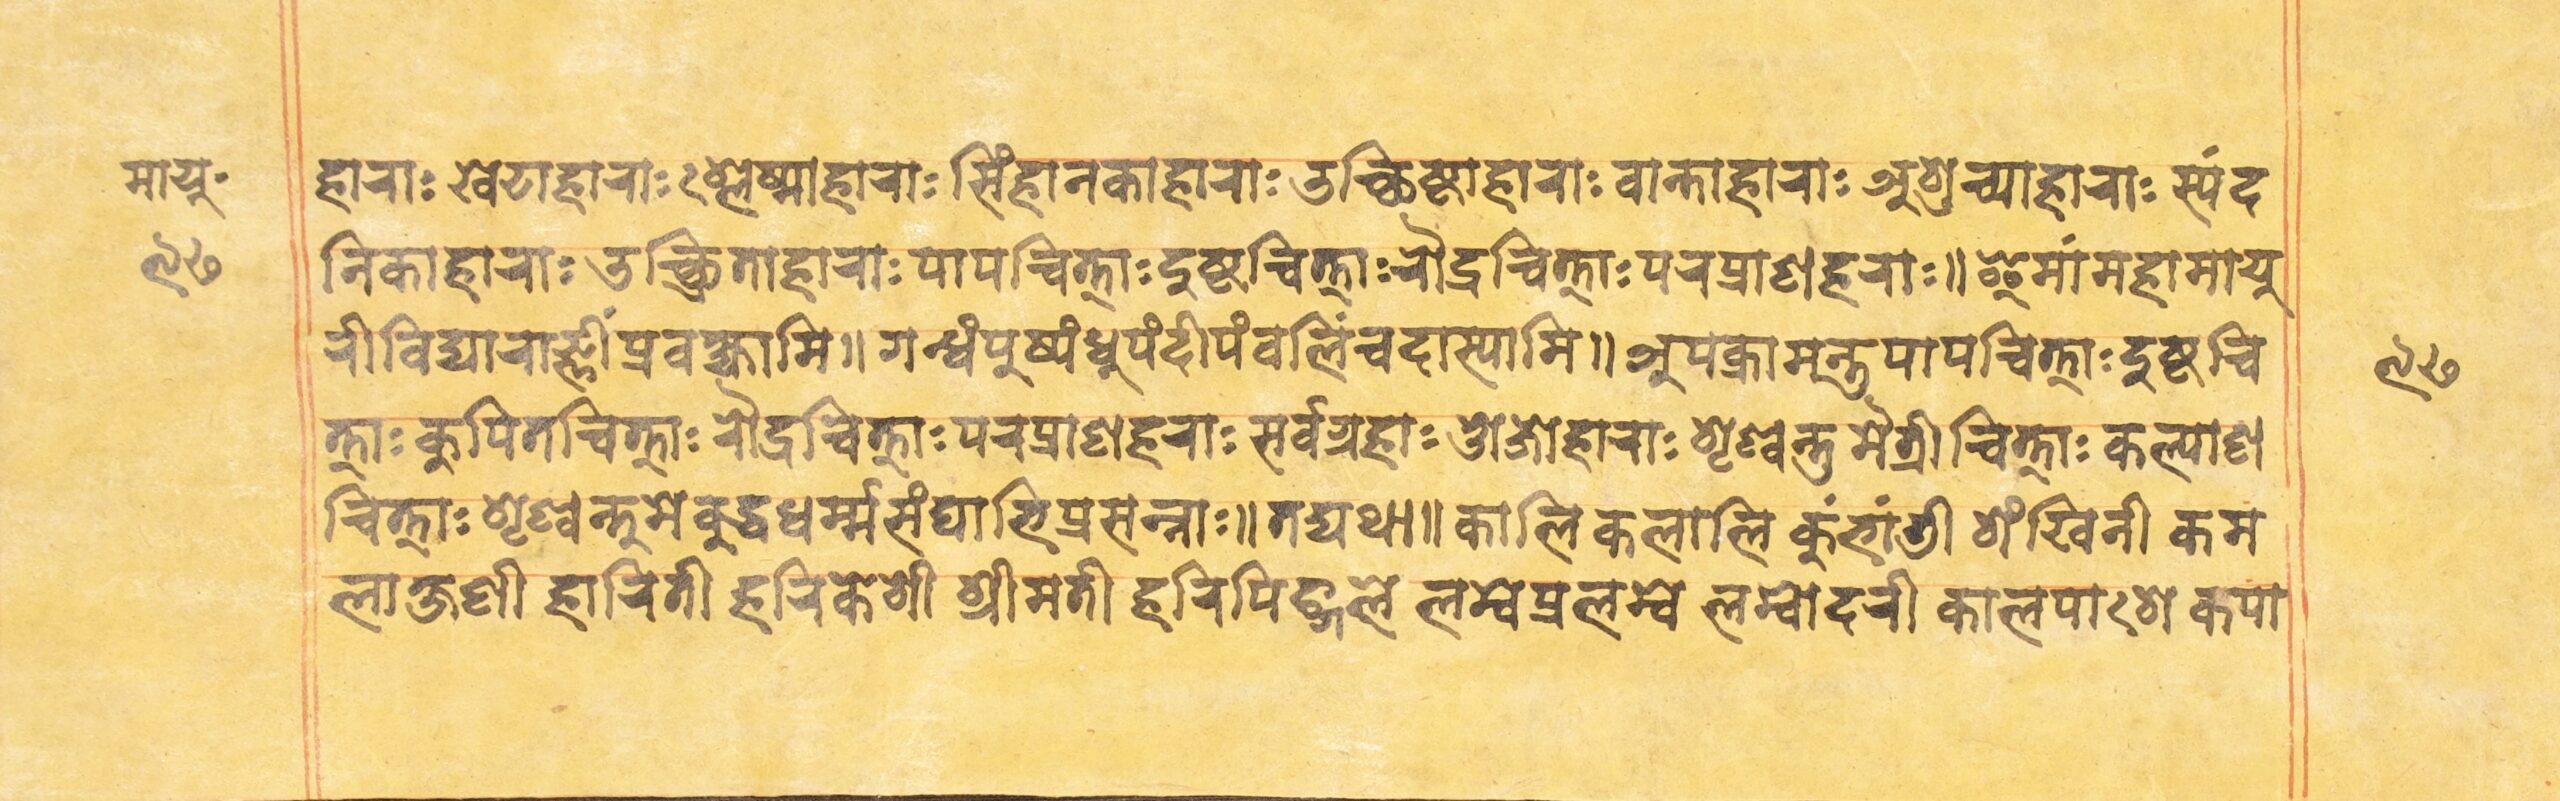 मायु॰
१७
हाराः खेटाहाराः श्लेष्माहाराः सिंहानकाहाराः उच्छिष्टाहाराः वान्ताहाराः अशुच्याहाराः स्यंद
निकाहाराः उच्छ्रिताहाराः पापचित्ताः दुष्टचित्ताः रौद्रचित्ताः परप्राणहराः॥ इमां महामायु
रीविद्याराज्ञीं प्रवक्ष्यामि॥ गन्धं पुष्पं धुपं दीपं वलिं च दास्यामि॥ अपक्रामन्तु पापचित्ताः दुष्टचि
१७
त्ताः कुपितचित्ताः रौद्रचित्ताः परप्राणहराः सर्वग्रहाः ओजोहाराः शृण्वन्तु मैत्रीचित्ताः कल्याण
चित्ताः शृण्वन्तु मे बुद्धधर्म्मसंघाभिप्रसन्नाः॥ तद्यथा॥ कालि कलालि कुंभांडी शंखिनी कम
लाक्षणी हारिती हरिकेशी श्रीमती हरिपिङ्गले लम्बे प्रलम्बे लम्बोदरी कालपाशे कपा